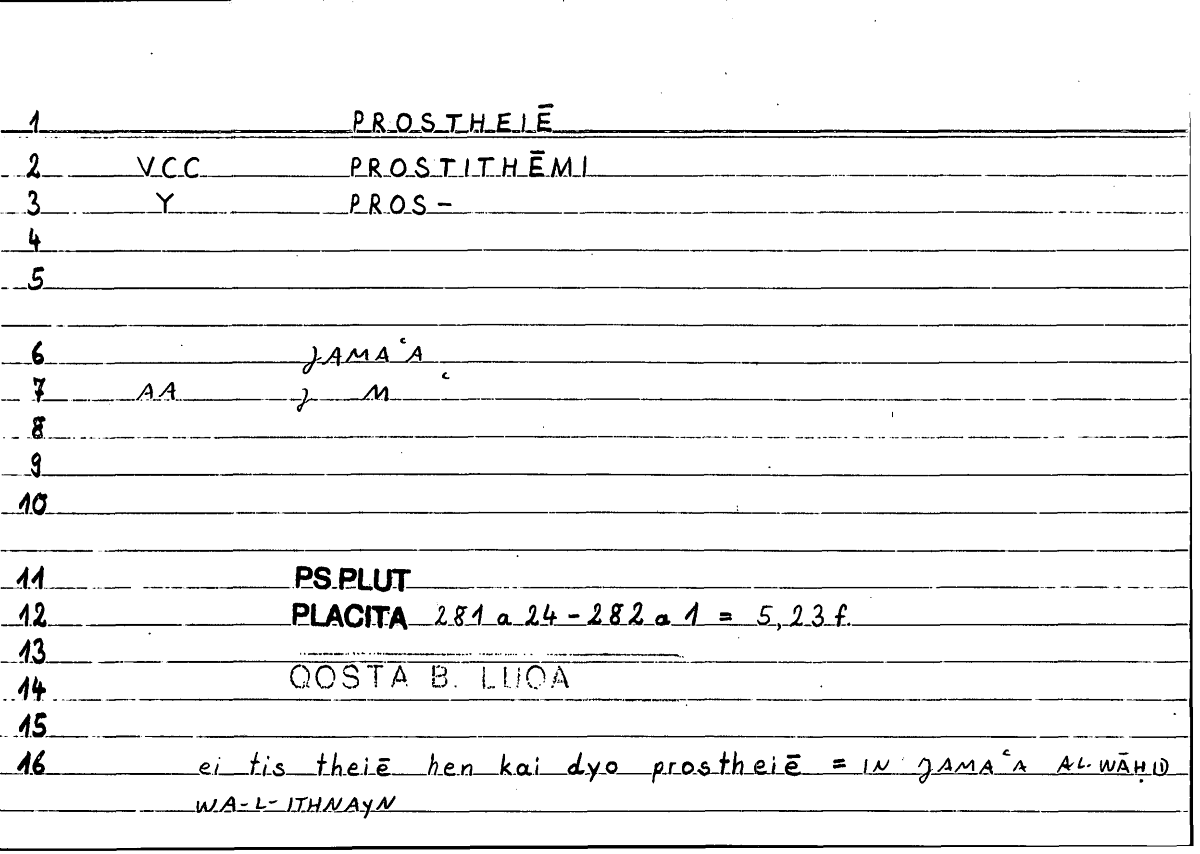 1 PROSTHEIĒ
2 VCC PROSTITHĒMI
3 Y PROS-
4
5
6 JAMAʿA
7 AA J M ʿ
8
9
10
11 PS.PLUT
12 PLACITA 281 a 24 - 282 a 1 = 5, 23 f.
13
14 QOSTA B. LUQA
15
16 ei tis theiē hen kai dyo prostheiē = IN JAMAʿA AL-WĀḤID
WA-L-ITHNAYN